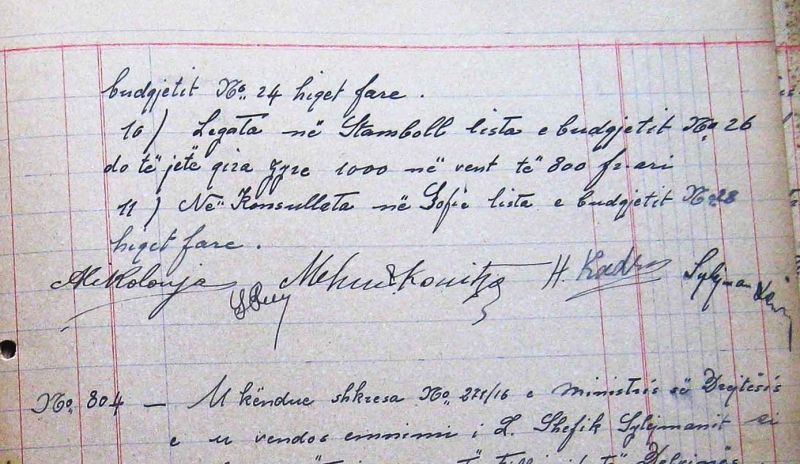 budgjetit No. 24 higet fare.
10) Legata në Stamboll lista e budgjetit No. 26
do të jetë qira zyre 1000 në vent të 800 fr. ari
11) Në Konsullata në Sofie lista e budgjetit No. 28
higet fare.
Ali Kolonja Mehmed Konitza H. Kadri Sylejman
No. 804 — U këndue shkresa No. 271/16 e Ministris së Drejtësis
e u vendos emnimi i Z. Shefik Sylejmanit si